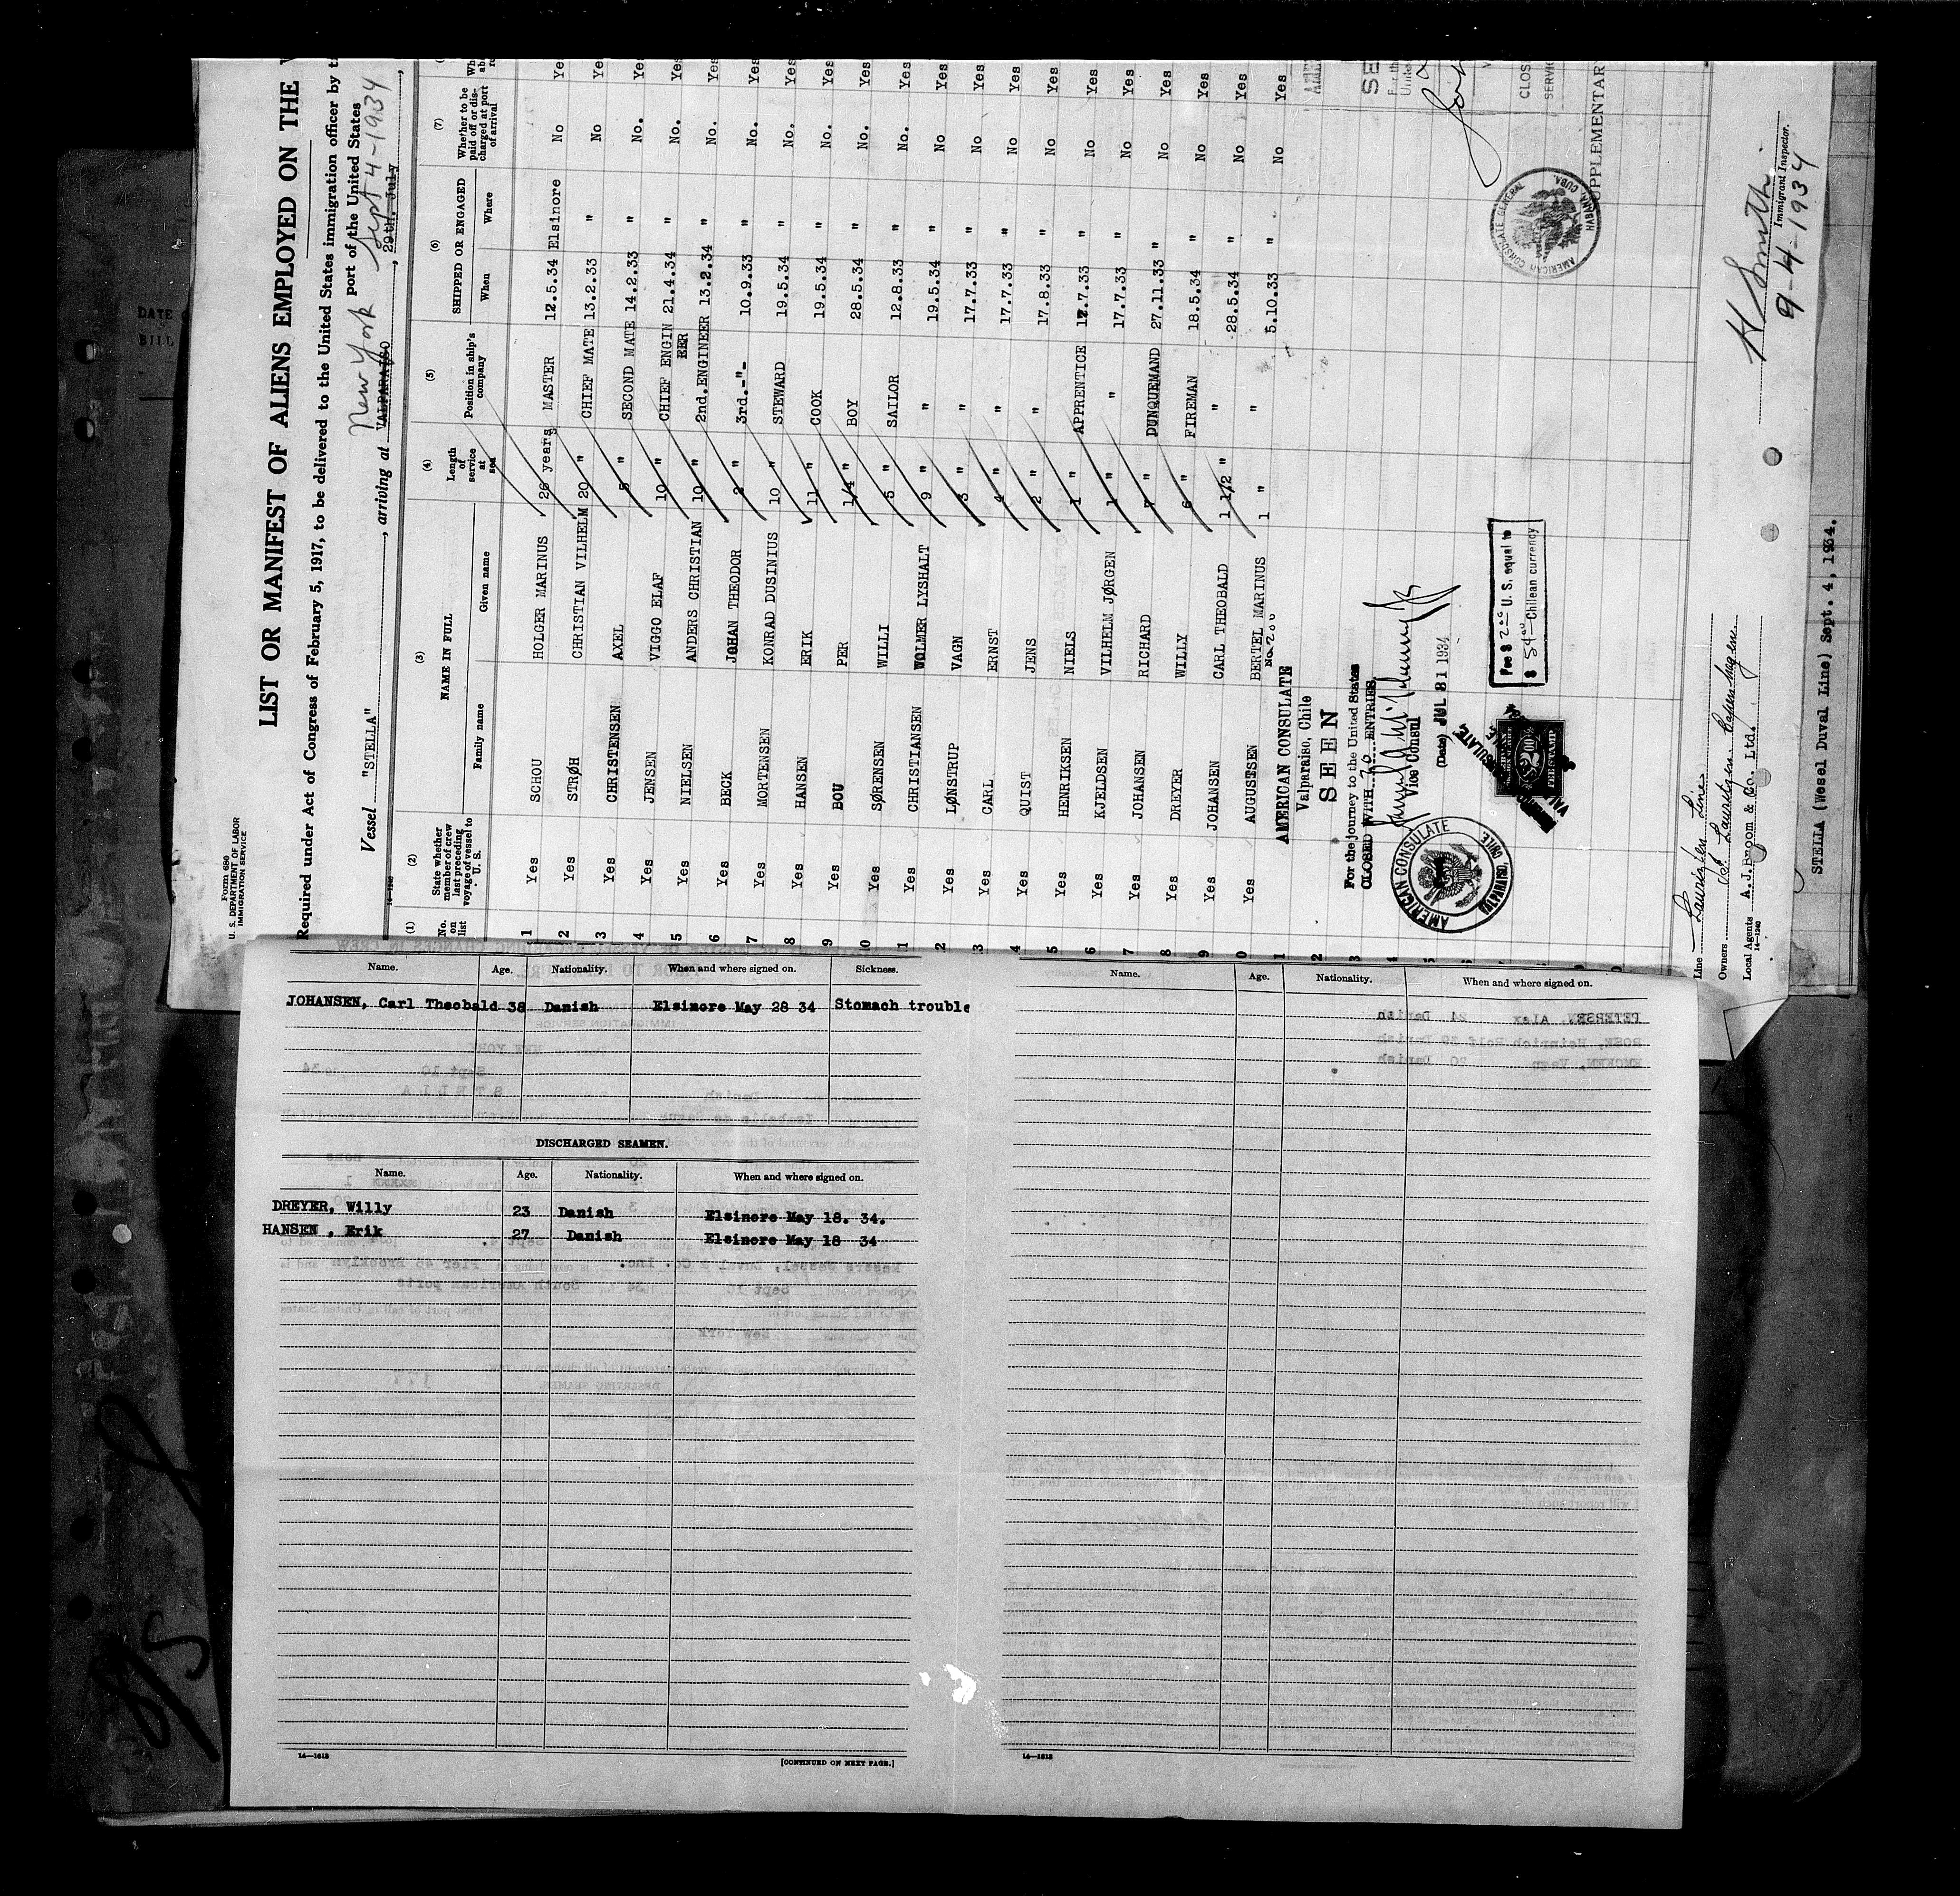 Form 680
U. S. DEPARTMENT OF LABOR
IMMIGRATION SERVICE
LIST OR MANIFEST OF ALIENS EMPLOYED ON THE
Required under Act of Congress of February 5, 1917, to be delivered to the United States immigration officer by
port of the United States
New York Sept 4-1934
Vessel "STELLA", arriving at VALPARAISO, 29th. July,
14-1240
(1) (2) (3) (4) (5) (6) (7)
No. on list
State whether member of crew last preceding voyage of vessel to U. S.
NAME IN FULL
Family name Given name
Length of service at sea
Position in ship's company
SHIPPED OR ENGAGED
When Where
Whether to be paid off or discharged at port of arrival
1 Yes SCHOU HOLGER MARINUS 26 years MASTER 12.5.34 Elsinore No Yes
2 Yes STRØH CHRISTIAN VILHELM 20 " CHIEF MATE 13.2.33 " No Yes
3 Yes CHRISTENSEN AXEL 5 " SECOND MATE 14.2.33 " No. Yes
4 Yes JENSEN VIGGO ELAF 10 " CHIEF ENGIN EER 21.4.34 " No. Yes
5 Yes NIELSEN ANDERS CHRISTIAN 10 " 2nd.ENGINEER 13.2.34 " No. Yes
6 Yes BECK JOHAN THEODOR 2 " 3rd.-"- 10.9.33 " No. Yes
7 Yes MORTENSEN KONRAD DUSINIUS 10 " STEWARD 19.5.34 " No. Yes
8 Yes HANSEN ERIK 11 " COOK 19.5.34 " No. Yes
9 Yes BOU PER 1/4 " BOY 28.5.34 " No. Yes
10 Yes SØRENSEN WILLI 5 " SAILOR 12.8.33 " No. Yes
11 Yes CHRISTIANSEN WOLMER LYSHALT 9 " " 19.5.34 " No Yes
2 Yes LØNSTRUP VAGN 3 " " 17.7.33 " No Yes
3 Yes CARL ERNST 4 " " 17.7.33 " No Yes
4 Yes QUIST JENS 2 " " 17.8.33 " No Yes
5 Yes HENRIKSEN NIELS 1 " APPRENTICE 12.7.33 " No Yes
6 Yes KJELDSEN VILHELM JØRGEN 1 " " 17.7.33 " No Yes
7 Yes JOHANSEN RICHARD 7 " DUNQUEMAND 27.11.33 " No Yes
8 Yes DREYER WILLY 6 " FIREMAN 18.5.34 " No Yes
9 Yes JOHANSEN CARL THEOBALD 1 1/2 " " 28.5.34 " No Yes
0 Yes AUGUSTSEN BERTEL MARINUS 1 " " 5.10.33 " No Yes
AMERICAN CONSULATE
Valparaiso, Chile
SEEN
For the journey to the United States
CLOSED WITH 20 ENTRIES
Vice Consul
(Date) JUL 31 1934
AMERICAN CONSULATE
VALPARAISO, CHILE
$2.00
FEE STAMP
Fee $ 2.00 U. S. equal to
$ Chilean currency
AMERICAN CONSULATE GENERAL
HABANA, CUBA.
SUPPLEMENTAR
CLOS
SERVIC
Line Lauritzen Line
Owners J. Lauritzen Copenhagen.
Local Agents A.J.Broom & Co. Ltd.
14-1240
H Smith
Immigrant Inspector.
9-4-1934
STELLA (Wesel Duval Line) Sept. 4, 1934.
DATE
BILL
Name. Age. Nationality. When and where signed on. Sickness.
JOHANSEN, Carl Theobald 38 Danish Elsinore May 28 34 Stomach trouble
DISCHARGED SEAMEN.
Name. Age. Nationality. When and where signed on.
DREYER, Willy 23 Danish Elsinore May 18. 34.
HANSEN , Erik 27 Danish Elsinore May 18 34
14-1618
[CONTINUED ON NEXT PAGE.]
Name. Age. Nationality. When and where signed on.
14-1618